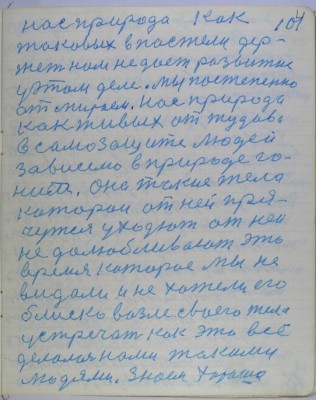 нас природа как 104
таковых в постели дер-
жет нам не дает развитие
у этом деле. мы постепенно
отмираем. нас природа
как живых оттудова
в самозащите людей
зависимо в природе го-
нит. Она такие тела
катораи от ней пря-
чутся уходют от неи
не долюбливают это
время каторае мы не
видали и не хотели его
близко возле своего тела
устречат как это всё
делолоя нами такими
людями. Знаем хорошо